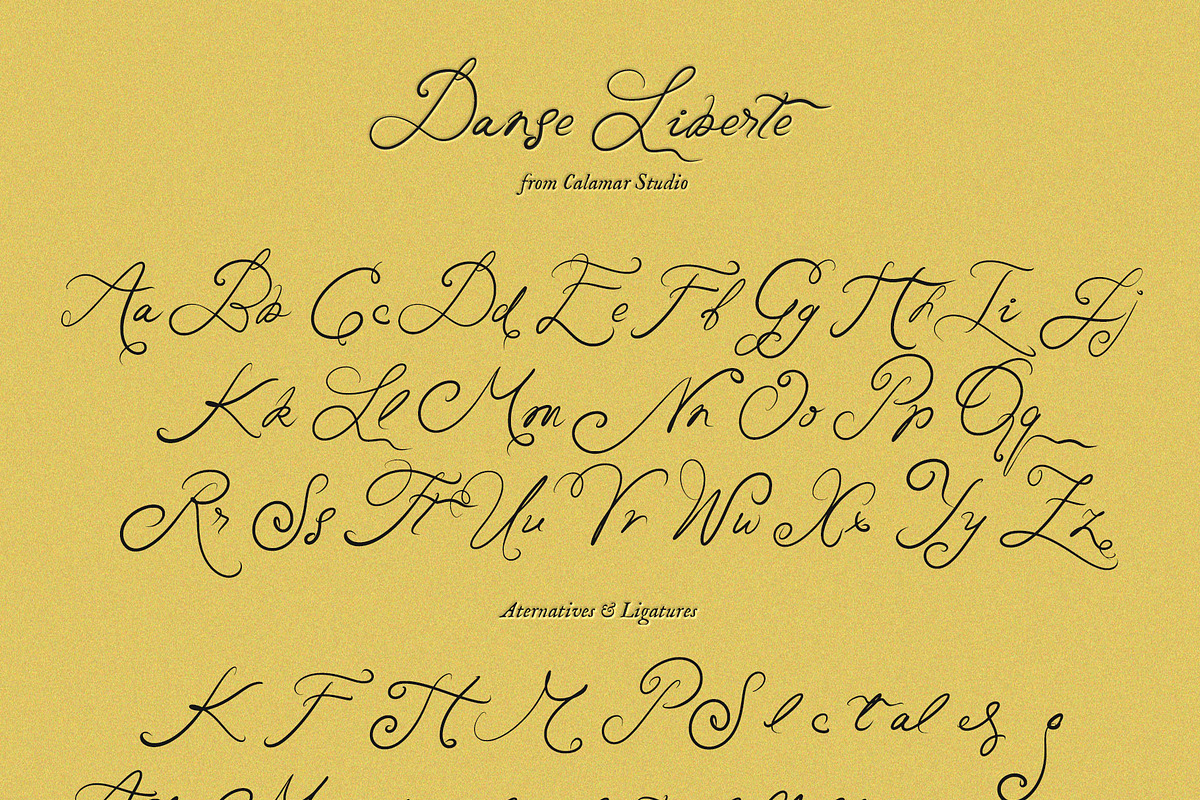 Danse Liberte
from Calamar Studio
Aa Bb Cc Dd Ee Ff Gg Hh Ii Jj
Kk Ll Mm Nn Oo Pp Qq
Rr Ss Tt Uu Vv Ww Xx Yy Zz
Aternatives & Ligatures
K F H M P S l c t al es g